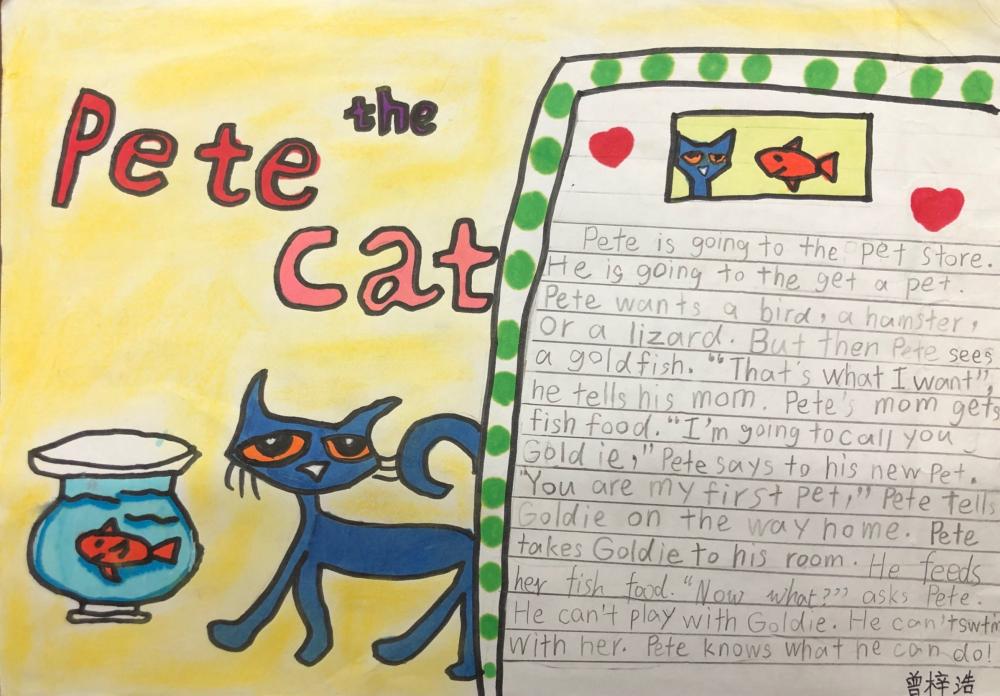 Pete the
cat
Pete is going to the pet store.
He is going to the get a pet.
Pete wants a bird, a hamster,
or a lizard. But then Pete sees
a goldfish. "That's what I want",
he tells his mom. Pete's mom gets
fish food. "I'm going to call you
Goldie," Pete says to his new Pet.
"You are my first pet," Pete tells
Goldie on the way home. Pete
takes Goldie to his room. He feeds
her fish food. "Now what?" asks Pete.
He can't play with Goldie. He can't swim
with her. Pete knows what he can do!
曾梓浩